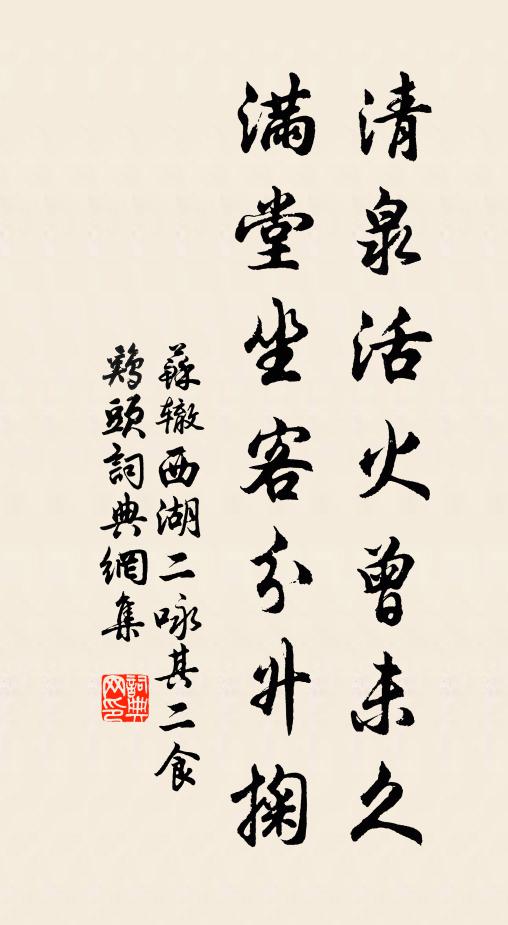 清泉活火曾未久
滿堂坐客分升掬
蘇轍西湖二咏其二食
鷄頭詞典網集
詞典网印